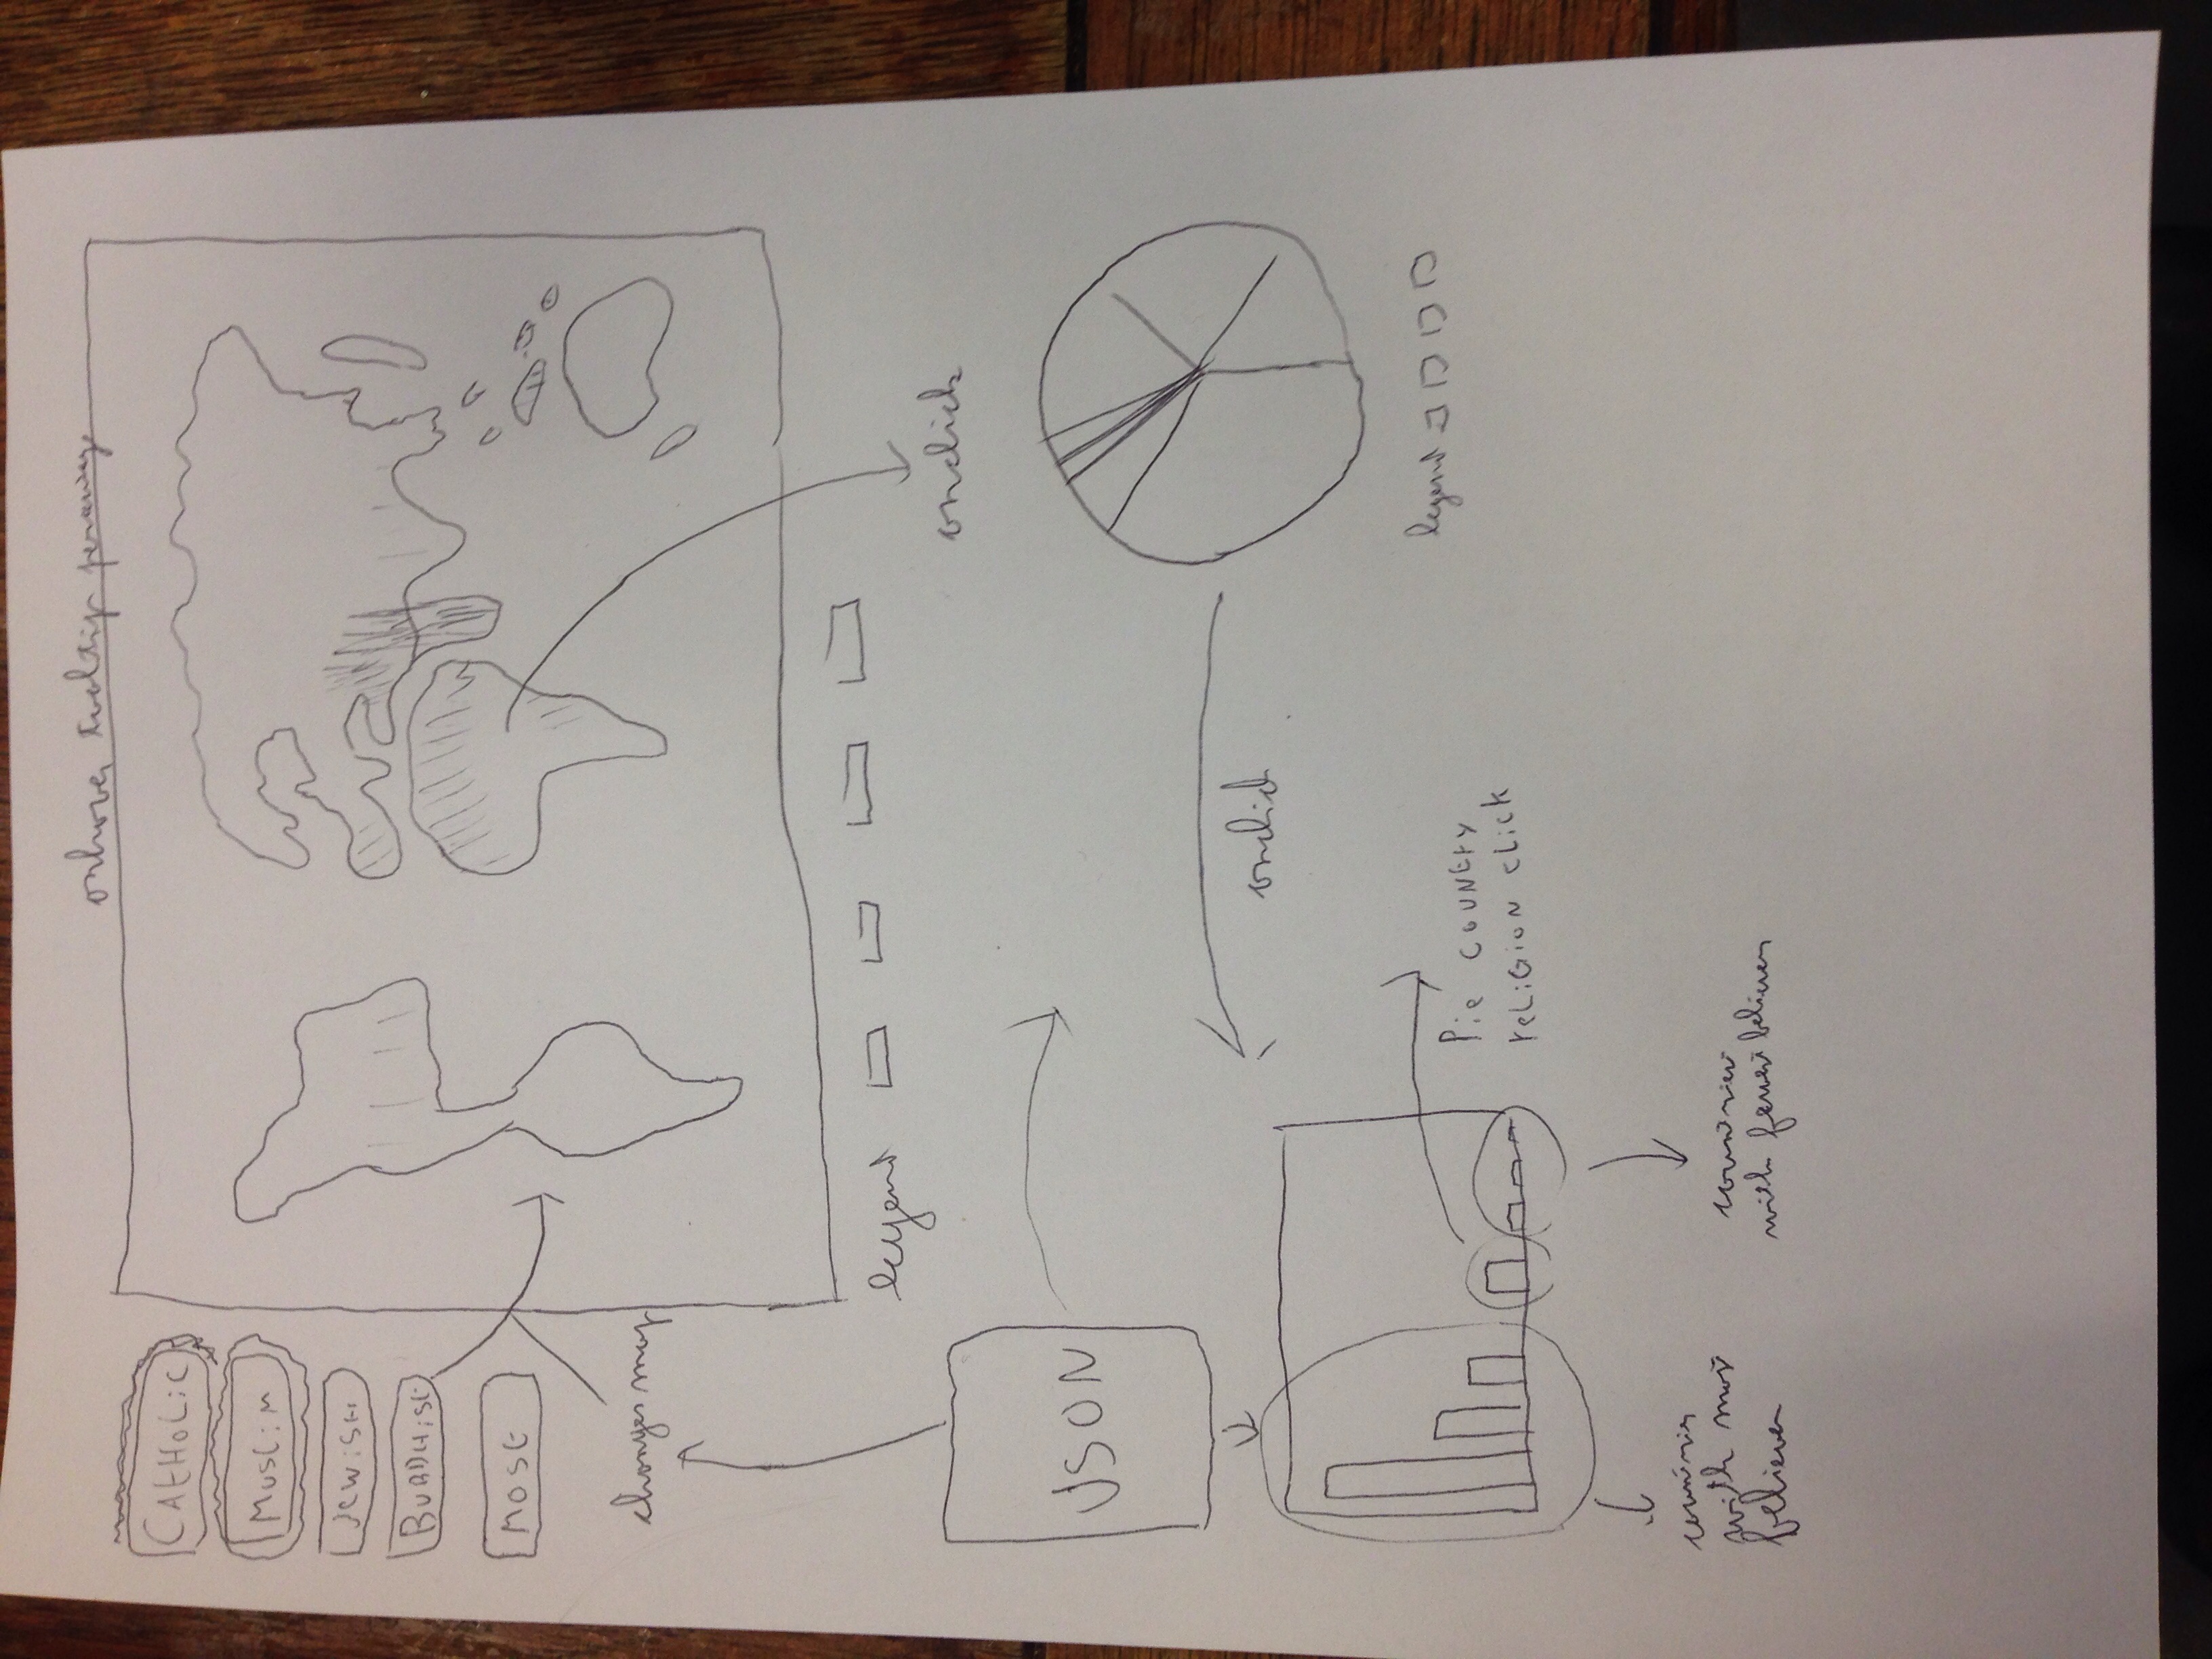 onhover tooltip
CAtHOLiC
MUSLiM
JEWiSH
BUDDHiSt
MOSt
changes map
legend
onclick
JSON
onclick
legend
Pie COUNtRY
reLiGiON CLiCK
countries
with most
believer
countries
with fewest believers